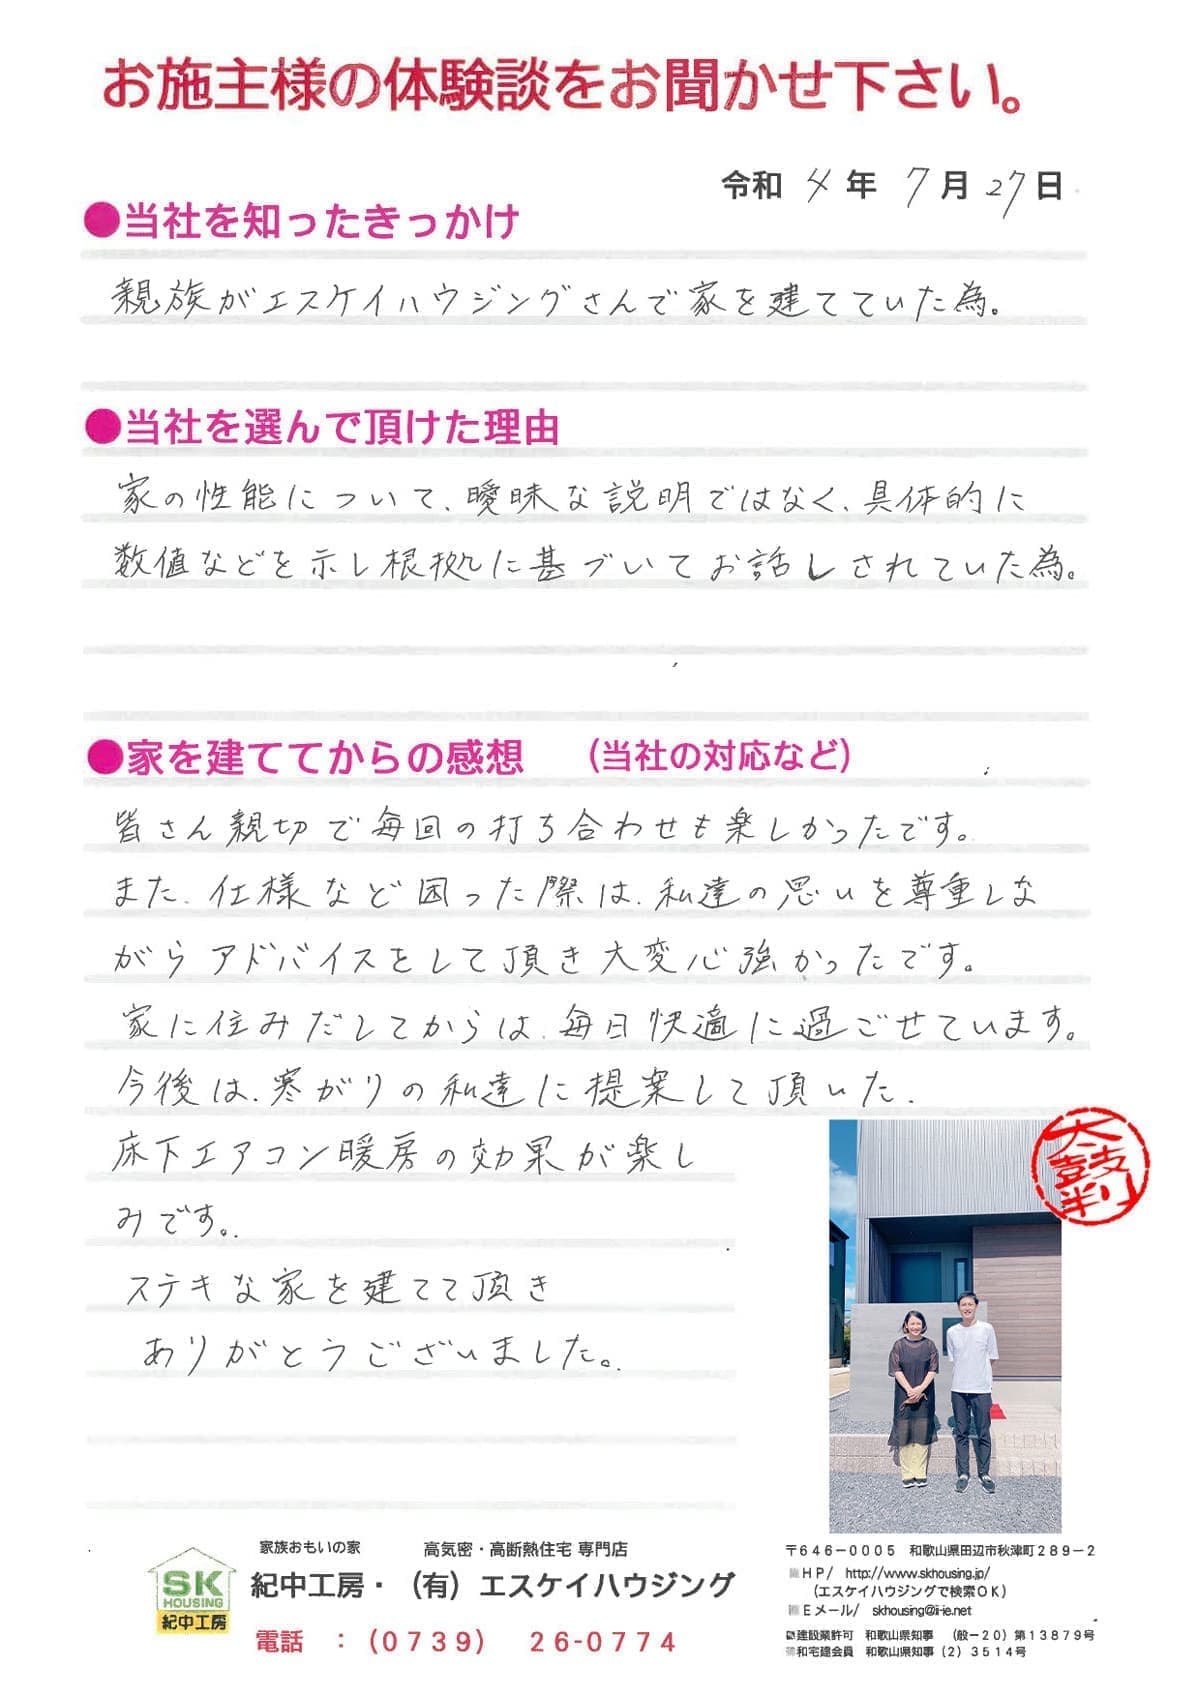 お施主様の体験談をお聞かせ下さい。
令和 4 年 7 月 27 日
●当社を知ったきっかけ
親族がエスケイハウジングさんで家を建てていた為。
●当社を選んで頂けた理由
家の性能について、曖昧な説明ではなく、具体的に
数値などを示し根拠に基づいてお話しされていた為。
●家を建ててからの感想 （当社の対応など）
皆さん親切で毎回の打ち合わせも楽しかったです。
また、仕様など困った際は、私達の思いを尊重しな
がらアドバイスをして頂き大変心強かったです。
家に住みだしてからは、毎日快適に過ごせています。
今後は、寒がりの私達に提案して頂いた、
床下エアコン暖房の効果が楽し
みです。
ステキな家を建てて頂き
ありがとうございました。
太鼓判
家族おもいの家 高気密・高断熱住宅 専門店
SK
HOUSING
紀中工房
紀中工房・（有）エスケイハウジング
電話 ：（０７３９） ２６-０７７４
〒６４６－０００５ 和歌山県田辺市秋津町２８９－２
ＨＰ/ http://www.skhousing.jp/
（エスケイハウジングで検索ＯＫ）
Ｅメール/ skhousing@ii-ie.net
建設業許可 和歌山県知事 （般－２０）第１３８７９号
和宅建会員 和歌山県知事（２）３５１４号